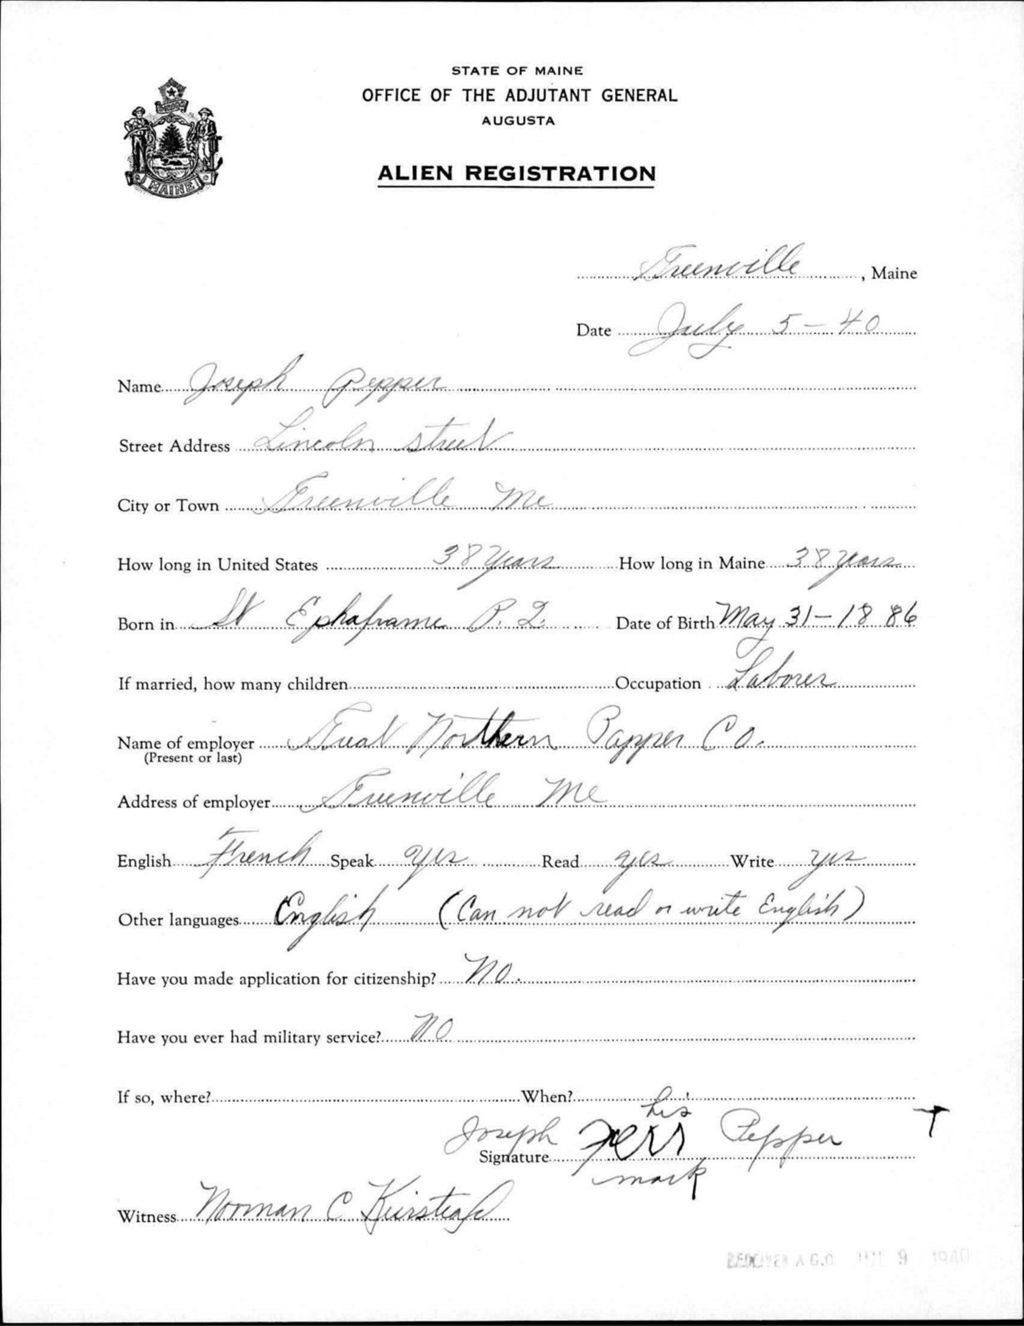 STATE OF MAINE
OFFICE OF THE ADJUTANT GENERAL
AUGUSTA
ALIEN REGISTRATION
MAINE
Greenville, Maine
Date July 5-40
Name Joseph Pepper
Street Address Lincoln street
City or Town Greenville Me
How long in United States 38 years How long in Maine 38 years
Born in St Ephaframe P.Q. Date of Birth May 31-1886
If married, how many children Occupation Laborer
Name of employer Great Northern Papper Co.
(Present or last)
Address of employer Greenville Me
English French Speak yes Read yes Write yes
Other languages English (Can not read or write English)
Have you made application for citizenship? No.
Have you ever had military service? No
If so, where? When?
his
Joseph Pepper
Signature
mark
Witness Norman C
RECEIVED A.G.O. JUL 9 1940